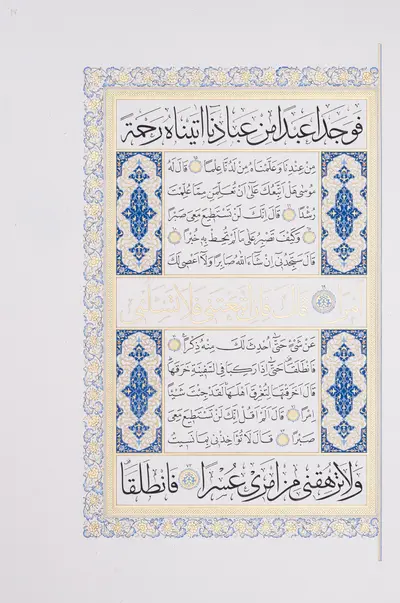 فَوَجَدَا عَبْدًا مِنْ عِبَادِنَا اٰتَيْنَاهُ رَحْمَةً
مِنْ عِنْدِنَا وَعَلَّمْنَاهُ مِنْ لَدُنَّا عِلْمًا قَالَ لَهُ
مُوسٰى هَلْ اَتَّبِعُكَ عَلٰى اَنْ تُعَلِّمَنِ مِمَّا عُلِّمْتَ
رُشْدًا قَالَ اِنَّكَ لَنْ تَسْتَطِيعَ مَعِىَ صَبْرًا
وَكَيْفَ تَصْبِرُ عَلٰى مَا لَمْ تُحِطْ بِهِ خُبْرًا
قَالَ سَتَجِدُنِى اِنْ شَاءَ اللّٰهُ صَابِرًا وَلَا اَعْصِى لَكَ
اَمْرًا قَالَ فَاِنِ اتَّبَعْتَنِى فَلَا تَسْـَٔلْنِى
عَنْ شَىْءٍ حَتّٰى اُحْدِثَ لَكَ مِنْهُ ذِكْرًا
فَانْطَلَقَا حَتّٰى اِذَا رَكِبَا فِى السَّفِينَةِ خَرَقَهَا
قَالَ اَخَرَقْتَهَا لِتُغْرِقَ اَهْلَهَا لَقَدْ جِئْتَ شَيْـًٔا
اِمْرًا قَالَ اَلَمْ اَقُلْ اِنَّكَ لَنْ تَسْتَطِيعَ مَعِىَ
صَبْرًا قَالَ لَا تُؤَاخِذْنِى بِمَا نَسِيتُ
وَلَا تُرْهِقْنِى مِنْ اَمْرِى عُسْرًا فَانْطَلَقَا